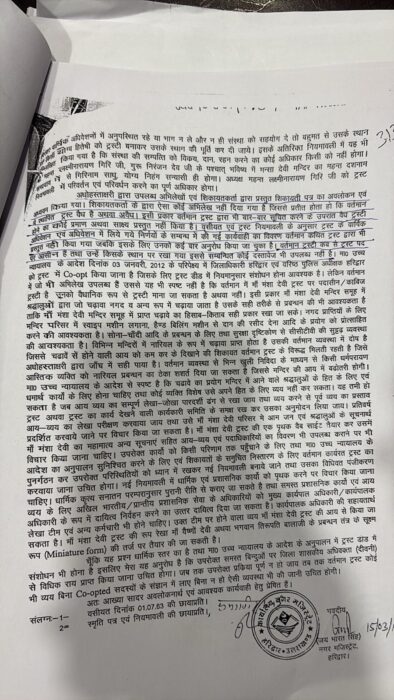 वार्षिक अधिवेशनों में अनुपस्थित रहे या भाग न ले और न ही संस्था को सहयोग दे तो बहुमत से उसके स्थान
हितेषी को ट्रस्टी बनाकर उसके स्थान की पूर्ति कर दी जाये। इसके अतिरिक्त नियमावली में यह भी
किया गया है कि संस्था की सम्पत्ति को विक्रय, दान, रहन करने का कोई अधिकार किसी को नहीं होगा।
लक्ष्मीनारायण गिरि जी, गुरू निरंजन देव जी के पश्चात् भविष्य में मन्सा देवी मन्दिर का महन्त दशनाम
से गिरिनाम साधु, योग्य निहंग सन्यासी ही होगा। अध्यक्ष महन्त लक्ष्मीनारायण गिरि जी को ट्रस्ट
में परिवर्तन एवं परिवर्धन करने का पूर्ण अधिकार होगा।
अधोहस्ताक्षरी द्वारा उपलब्ध अभिलेखों एवं शिकायतकर्ता द्वारा प्रस्तुत शिकायती पत्र का अवलोकन एवं
किया गया। शिकायतकर्ता के द्वारा ऐसा कोई अभिलेख नहीं दिया गया है जिससे प्रतीत होता हो कि वर्तमान
ट्रस्ट वैध है अथवा अवैध। इसी प्रकार वर्तमान ट्रस्ट द्वारा भी बार-बार सूचित करने के उपरान्त वैध ट्रस्टी
होने का कोई प्रमाण अथवा साक्ष्य प्रस्तुत नहीं किया है। वसीयत एवं ट्रस्ट नियमावली के अनुसार ट्रस्ट के वार्षिक
अधिवेशन एवं अधिवेशन में लिये गये निर्णयों के सम्बन्ध में की गई कार्यवाही का विवरण वर्तमान कथित ट्रस्ट द्वारा भी
प्रस्तुत नहीं किया गया जबकि इसके लिए उनको कई बार अनुरोध किया जा चुका है। वर्तमान ट्रस्टी कब से ट्रस्ट पद
पर आसीन हैं तथा उन्हें किसके स्थान पर रखा गया इससे सम्बन्धित कोई दस्तावेज भी उपलब्ध नहीं है। मा0 उच्च
न्यायालय के आदेश दिनांक 03 जनवरी, 2012 के परिपेक्ष्य में जिलाधिकारी हरिद्वार एवं वरिष्ठ पुलिस अधीक्षक हरिद्वार
को ट्रस्ट में Co-opt किया जाना है जिसके लिए ट्रस्ट डीड में नियमानुसार संशोधन होना आवश्यक है। लेकिन वर्तमान
में जो भी अभिलेख उपलब्ध हैं उससे यह भी स्पष्ट नहीं है कि वर्तमान में माँ मंशा देवी ट्रस्ट पर पदासीन / काबिज
ट्रस्टी है, उनको वैधानिक रूप से ट्रस्टी माना जा सकता है अथवा नहीं। इसी प्रकार माँ मंशा देवी मन्दिर समूह में
श्रद्धालुओं द्वारा जो चढ़ावा नगद व अन्य रूप में चढ़ाया जाता है उसके सही तरीके से प्रबन्धन की भी आवश्यकता है
ताकि माँ मंशा देवी मन्दिर समूह में प्राप्त चढ़ावे का हिसाब-किताब सही प्रकार रखा जा सके। नगद प्राप्तियों के लिए
मन्दिर परिसर में स्वाइप मशीन लगाना, हैण्ड बिलिंग मशीन से दान की रसीद देना आदि के प्रयोग को प्रोत्साहित
करने की भी आवश्यकता है। सोना-चाँदी आदि के प्रबन्धन के लिए तथा सुरक्षा दृष्टिकोण से सीसीटीवी की सुदृढ़ व्यवस्था
की आवश्यकता है। विभिन्न मन्दिरों में नारियल के रूप में चढ़ावा प्राप्त होता है उसकी वर्तमान व्यवस्था में दोष है
जिससे चढ़ावे से होने वाली आय को कम कर के दिखाने की शिकायत वर्तमान ट्रस्ट के विरूद्ध मिलती रहती है जिसे
अधोहस्ताक्षरी द्वारा जाँच में सही पाया है। वर्तमान व्यवस्था से भिन्न खुली निविदा के माध्यम से किसी धर्मपरायण
आस्तिक व्यक्ति को नारियल प्रबन्धन का ठेका दिया जा सकता है जिससे मन्दिर की आय में बढोत्तरी होगी।
मा0 उच्च न्यायालय के आदेश से स्पष्ट है कि चढावे का प्रयोग मन्दिर में आने वाले श्रद्धालुओं के हित के लिए एवं
धमार्थ कार्यों के लिए होना चाहिए तथा कोई व्यक्ति विशेष उसे अपने हित के लिए व्यय नहीं कर सकता। यह तभी हो
सकता है जब आय व्यय का सम्पूर्ण लेखा-जोखा पारदर्शी ढंग से रखा जाय तथा व्यय करने से पूर्व व्यय का प्रस्ताव
ट्रस्ट अथवा ट्रस्ट का कार्य देखने वाली कार्यकारी समिति के समक्ष रख कर उसका अनुमोदन लिया जाय। प्रतिवर्ष
आय-व्यय का लेखा परीक्षण कराया जाय तथा उसे माँ मंशा देवी परिसर में आम जन एवं श्रद्धालुओं के सूचनार्थ
प्रदर्शित करवाये जाने पर विचार किया जा सकता है। माँ मंशा देवी ट्रस्ट की एक पृथक वैब साईट तैयार कर उसमें
माँ मंशा देवी का महात्मय अन्य सूचनाएं सहित आय-व्यय एवं पदाधिकारियों का विवरण भी उपलब्ध कराने पर भी
विचार किया जाना चाहिए। उपरोक्त कार्यों को किसी परिणाम तक पहुँचाने के लिए तथा मा0 उच्च न्यायालय के
आदेश का अनुपालन सुनिश्चित करने के लिए एवं शिकायतों के समुचित निस्तारण के लिए वर्तमान कार्यरत ट्रस्ट का
पुनर्गठन कर उपरोक्त परिस्थितियों को ध्यान में रखकर नई नियमावली बनाये जाने तथा उसका विधिवत पंजीकरण
करवाया जाना उचित होगा। नई नियमावली में धार्मिक एवं प्रशासनिक कार्यों को पृथक करने पर विचार किया जाना
चाहिए। धार्मिक कृत्य सनातन परम्परानुसार पुरानी रीति से कराए जा सकते हैं तथा समस्त प्रशासनिक कार्यों एवं आय
व्यय के लिए अखिल भारतीय / प्रान्तीय प्रशासनिक सेवा के अधिकारियों को मुख्य कार्यपाल अधिकारी / कार्यपालक
अधिकारी के रूप में दायित्व निर्वहन करने का उत्तर दायित्व दिया जा सकता है। कार्यपालक अधिकारी की सहायतार्थ
लेखा टीम एवं अन्य कर्मचारी भी होने चाहिए। उक्त टीम पर होने वाला व्यय माँ मंशा देवी मन्दिर की आय से किया जा
सकता है। माँ मंशा देवी की रूप रेखा माँ वैष्णो देवी अथवा भगवान तिरूपति बालाजी के प्रबन्धन तंत्र के सूक्ष्म
रूप (Miniature form) की तर्ज पर तैयार की जा सकती है।
चूँकि यह प्रश्न धार्मिक स्तर का है तथा मा0 उच्च न्यायालय के आदेश के अनुपालन में ट्रस्ट डीड में
संशोधन भी होना है इसलिए मेरा यह अनुरोध है कि उपरोक्त समस्त बिन्दुओं पर जिला शासकीय अधिवक्ता (दीवानी)
से विधिक राय प्राप्त किया जाना उचित होगा। जब तक उपरोक्त प्रक्रिया पूर्ण न हो जाय तब तक वर्तमान ट्रस्टी कोई
भी व्यय बिना Co-opted सदस्यों के संज्ञान में लाए बिना न हो ऐसी व्यवस्था भी की जानी उचित होगी।
अतः आख्या सादर अवलोकनार्थ एवं आवश्यक कार्यवाही हेतु प्रेषित है।
संलग्न:-1- वसीयत दिनांक 01.07.63 की छायाप्रति।
2= स्मृति पत्र एवं नियमावली की छायाप्रति।
भवदीय,
15/03/1
(जय भारत सिंह)
नगर मजिस्ट्रेट,
हरिद्वार।